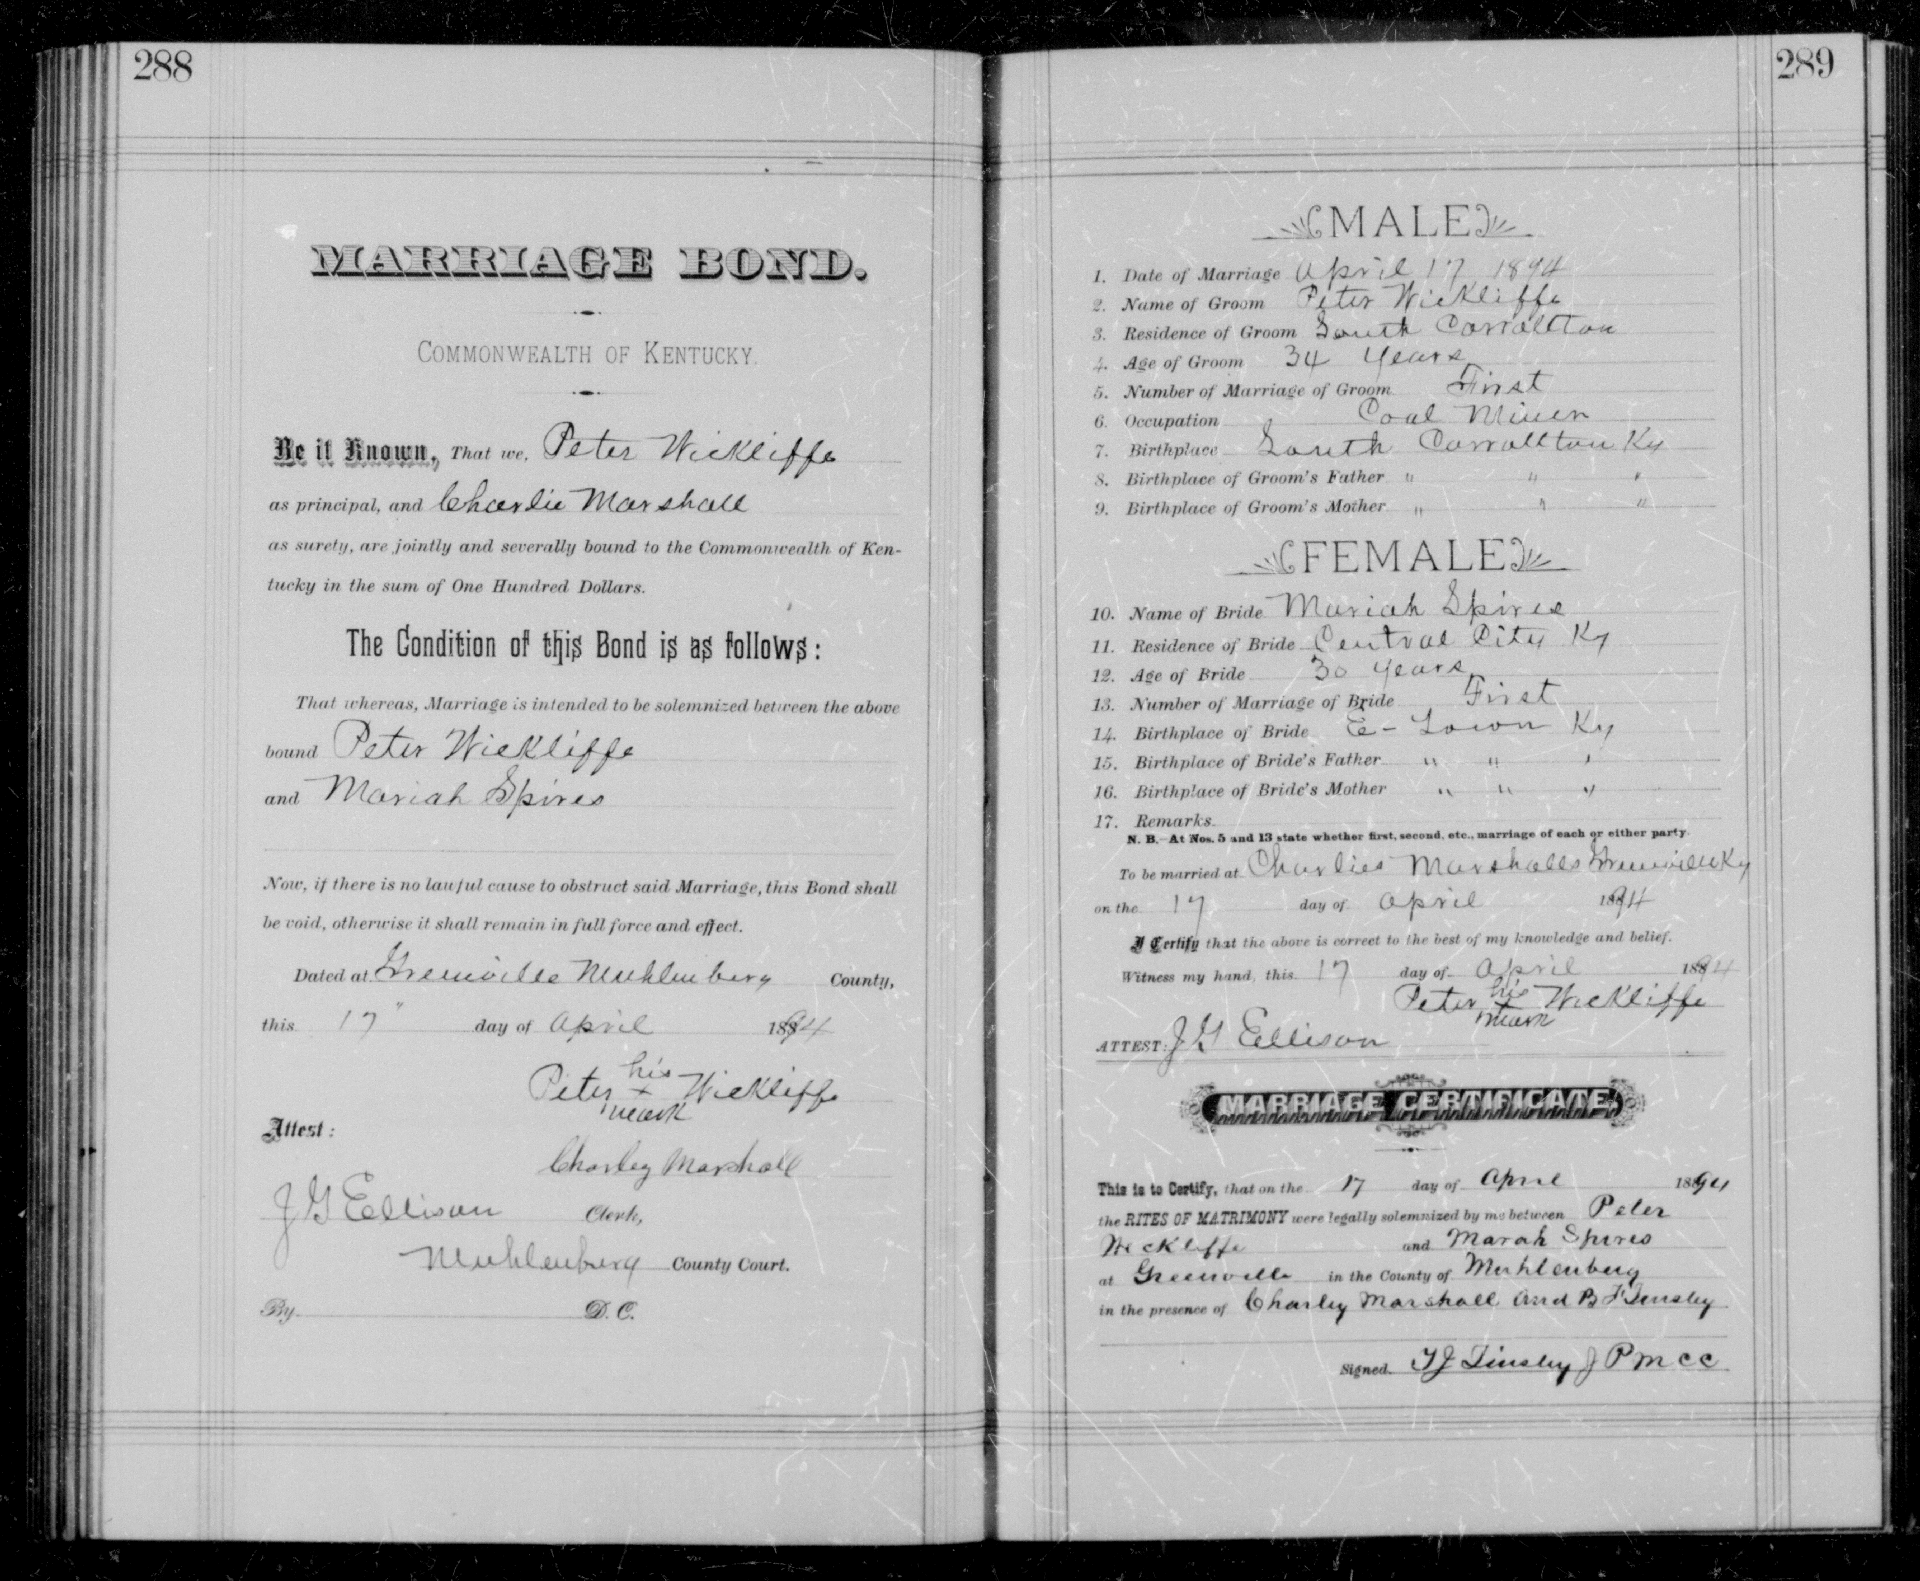 288
MARRIAGE BOND.
COMMONWEALTH OF KENTUCKY.
Be it Known, That we, Peter Wickliffe
as principal, and Charlie Marshall
as surety, are jointly and severally bound to the Commonwealth of Ken-
tucky in the sum of One Hundred Dollars.
The Condition of this Bond is as follows:
That whereas, Marriage is intended to be solemnized between the above
bound Peter Wickliffe
and Mariah Spires
Now, if there is no lawful cause to obstruct said Marriage, this Bond shall
be void, otherwise it shall remain in full force and effect.
Dated at Greenville Muhlenberg County,
this 17" day of April 1894
his
Peter x Wickliffe
mark
Attest:
Charley Marshall
J G Ellison Clerk,
Muhlenberg County Court.
By D. C.
289
MALE
1. Date of Marriage April 17 1894
2. Name of Groom Peter Wickliffe
3. Residence of Groom South Carrollton
4. Age of Groom 34 Years
5. Number of Marriage of Groom First
6. Occupation Coal Miner
7. Birthplace South Carrollton Ky
8. Birthplace of Groom's Father " " "
9. Birthplace of Groom's Mother " " "
FEMALE
10. Name of Bride Mariah Spires
11. Residence of Bride Central City Ky
12. Age of Bride 30 years
13. Number of Marriage of Bride First
14. Birthplace of Bride E- Town Ky
15. Birthplace of Bride's Father " " "
16. Birthplace of Bride's Mother " " "
17. Remarks
N. B.-At Nos. 5 and 13 state whether first, second, etc., marriage of each or either party.
To be married at Charlies Marshalls Greenville Ky
on the 17 day of April 1894
I Certify that the above is correct to the best of my knowledge and belief.
Witness my hand, this 17 day of April 1894
his
Peter x Wickliffe
mark
ATTEST: J G Ellison
MARRIAGE CERTIFICATE.
This is to Certify, that on the 17 day of April 1894
the RITES OF MATRIMONY were legally solemnized by me between Peter
Wickliffe and Marah Spires
at Greenville in the County of Muhlenberg
in the presence of Charley Marshall and B F Tinsley
Signed. T J Tinsley J P M C C